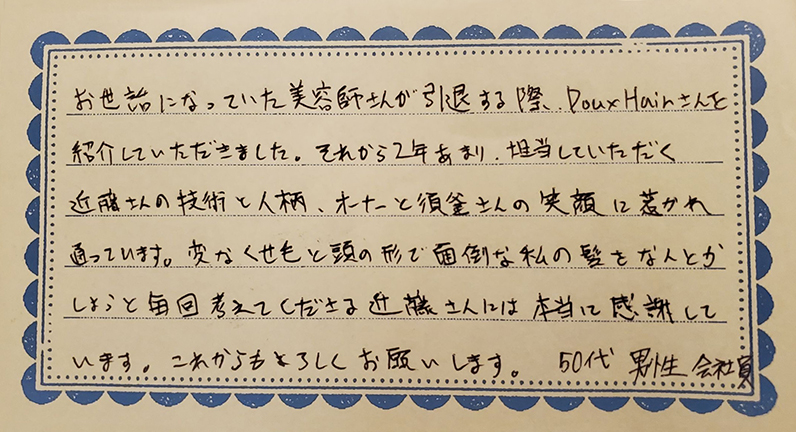 お世話になっていた美容師さんが引退する際、DouxHairさんを
紹介していただきました。それから2年あまり、担当していただく
近藤さんの技術と人柄、オーナーと須釜さんの笑顔に惹かれ
通っています。変なくせ毛と頭の形で面倒な私の髪をなんとか
しようと毎回考えてくださる近藤さんには本当に感謝して
います。これからもよろしくお願いします。 50代 男性 会社員